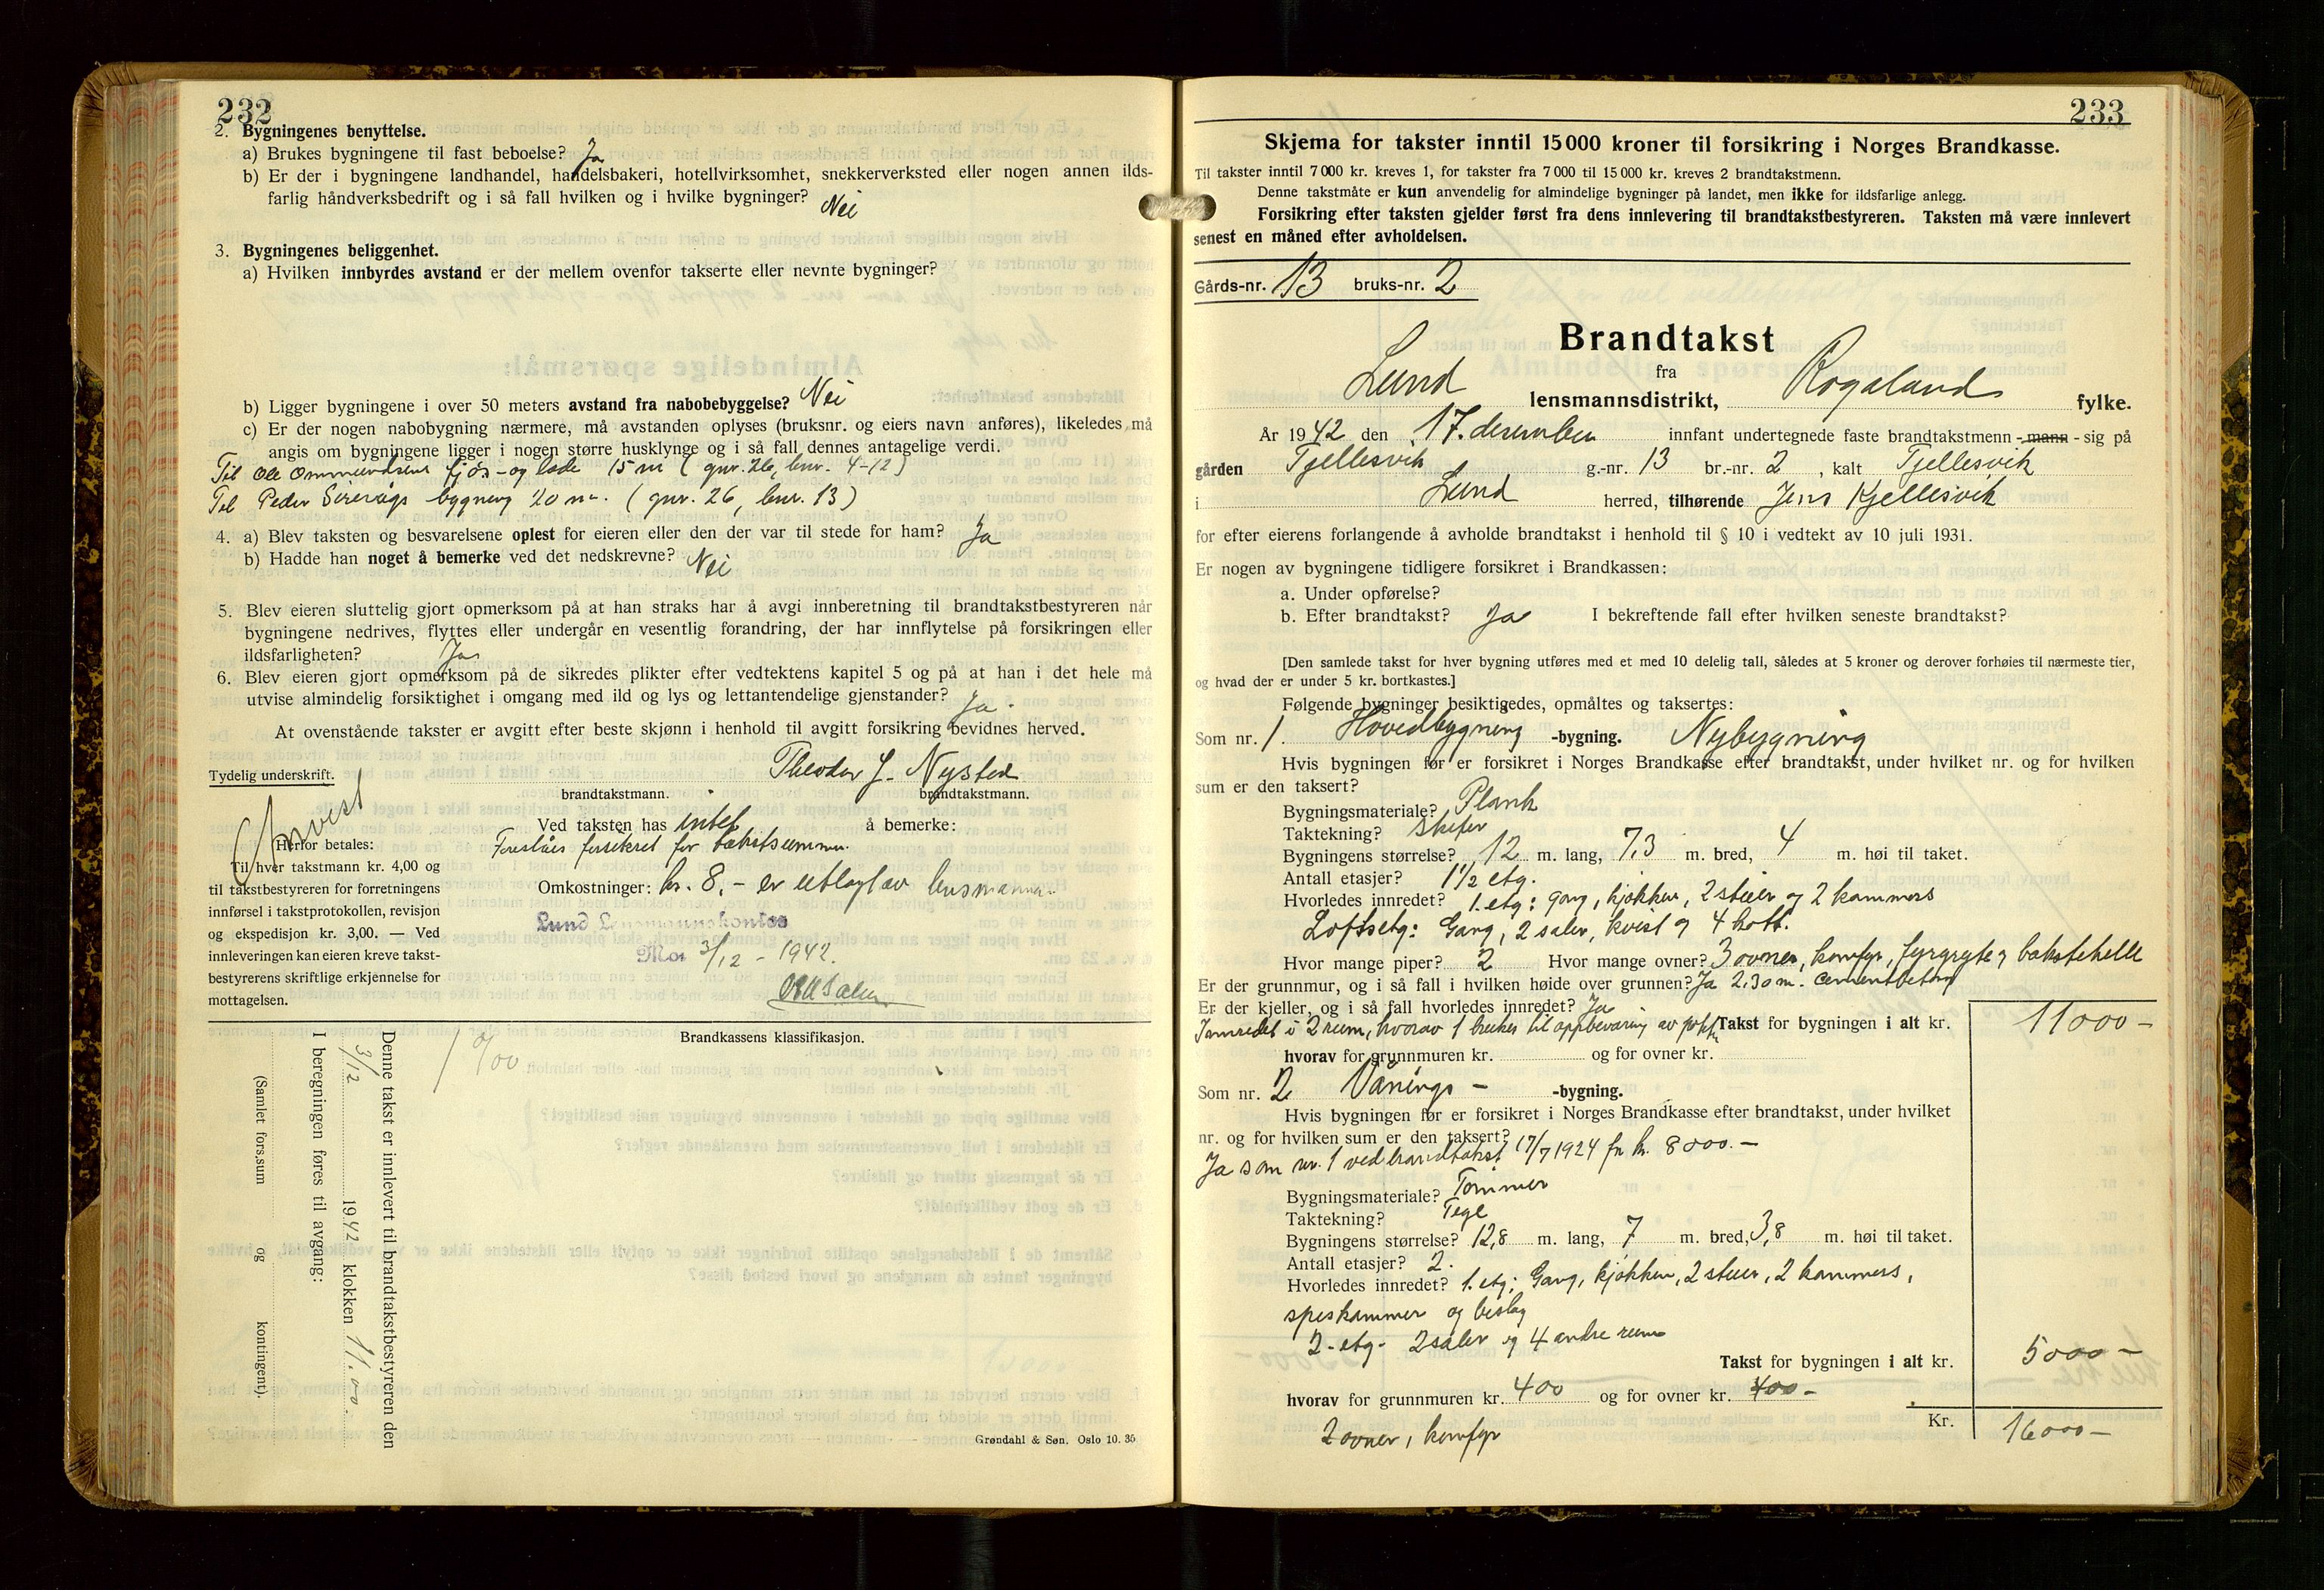 232
2. Bygningenes benyttelse.
a) Brukes bygningene til fast beboelse? Ja
b) Er der i bygningene landhandel, handelsbakeri, hotellvirksomhet, snekkerverksted eller nogen annen ilds-
farlig håndverksbedrift og i så fall hvilken og i hvilke bygninger? Nei
3. Bygningenes beliggenhet.
a) Hvilken innbyrdes avstand er der mellem ovenfor takserte eller nevnte bygninger?
b) Ligger bygningene i over 50 meters avstand fra nabobebyggelse? Nei
c) Er der nogen nabobygning nærmere, må avstanden oplyses (bruksnr. og eiers navn anføres), likeledes må
angis om bygningene ligger i nogen større husklynge og i så fall dennes antagelige verdi.
Til Ole Ommundsens fjøs- og lade 15 m (gnr. 26, bnr. 4-12)
Til Peder Sirevågs bygning 20 m. (gnr. 26, bnr. 13)
4. a) Blev taksten og besvarelsene oplest for eieren eller den der var til stede for ham? Ja
b) Hadde han noget å bemerke ved det nedskrevne? Nei
5. Blev eieren sluttelig gjort opmerksom på at han straks har å avgi innberetning til brandtakstbestyreren når
bygningene nedrives, flyttes eller undergår en vesentlig forandring, der har innflytelse på forsikringen eller
ildsfarligheten? Ja
6. Blev eieren gjort opmerksom på de sikredes plikter efter vedtektens kapitel 5 og på at han i det hele må
utvise almindelig forsiktighet i omgang med ild og lys og lettantendelige gjenstander? Ja.
At ovenstående takster er avgitt efter beste skjønn i henhold til avgitt forsikring bevidnes herved.
Tydelig underskrift.
Theodor J. Nysted
brandtakstmann. brandtakstmann.
Ved taksten has intet å bemerke:
Foreslåes forsikret for takstsummen.
Herfor betales:
Til hver takstmann kr. 4,00 og
til takstbestyreren for forretningens
innførsel i takstprotokollen, revisjon
og ekspedisjon kr. 3,00. — Ved
innleveringen kan eieren kreve takst-
bestyrerens skriftlige erkjennelse for
mottagelsen.
Omkostninger: kr. 8,- er utlagt av lensmannen.
Lund Lensmannskontor
Moi 3/12 - 1942.
Denne takst er innlevert til brandtakstbestyreren den
3/12 1942 klokken 11.00.
I beregningen føres til avgang:
(Samlet fors.sum og kontingent).
Brandkassens klassifikasjon.
1 %00
Grøndahl & Søn. Oslo 10. 35
233
Skjema for takster inntil 15 000 kroner til forsikring i Norges Brandkasse.
Til takster inntil 7 000 kr. kreves 1, for takster fra 7 000 til 15 000 kr. kreves 2 brandtakstmenn.
Denne takstmåte er kun anvendelig for almindelige bygninger på landet, men ikke for ildsfarlige anlegg.
Forsikring efter taksten gjelder først fra dens innlevering til brandtakstbestyreren. Taksten må være innlevert
senest en måned efter avholdelsen.
Gårds-nr. 13 bruks-nr. 2
Brandtakst
fra
Lund lensmannsdistrikt, Rogaland fylke.
År 1942 den 17. desember innfant undertegnede faste brandtakstmenn - mann - sig på
gården Tjellesvik g.-nr. 13 br.-nr. 2, kalt Tjellesvik
i Lund herred, tilhørende Jens Kjellesvik
for efter eierens forlangende å avholde brandtakst i henhold til § 10 i vedtekt av 10 juli 1931.
Er nogen av bygningene tidligere forsikret i Brandkassen:
a. Under opførelse?
b. Efter brandtakst? Ja I bekreftende fall efter hvilken seneste brandtakst?
[Den samlede takst for hver bygning utføres med et med 10 delelig tall, således at 5 kroner og derover forhøies til nærmeste tier,
og hvad der er under 5 kr. bortkastes.]
Følgende bygninger besiktigedes, opmåltes og taksertes:
Som nr. 1. Hovedbygning -bygning. Nybygning
Hvis bygningen før er forsikret i Norges Brandkasse efter brandtakst, under hvilket nr. og for hvilken
sum er den taksert?
Bygningsmateriale? Plank
Taktekning? Skifer
Bygningens størrelse? 12 m. lang, 7,3 m. bred, 4 m. høi til taket.
Antall etasjer? 1 1/2 etg.
Hvorledes innredet? 1. etg: gang, kjøkken, 2 stuer og 2 kammers
Loftsetg: Gang, 2 saler, kvist og 4 kott.
Hvor mange piper? 2 Hvor mange ovner? 3 ovner, komfyr, fyrgryte og bakstehelle
Er der grunnmur, og i så fall i hvilken høide over grunnen? Ja 2,30 m. cementbetong
Er der kjeller, og i så fall hvorledes innredet? Ja
Innredet i 2 rum, hvorav 1 brukes til oppbevaring av Takst for bygningen i alt kr. 11000 -
hvorav for grunnmuren kr. og for ovner kr.
Som nr. 2 Vånings - -bygning.
Hvis bygningen før er forsikret i Norges Brandkasse efter brandtakst, under hvilket
nr. og for hvilken sum er den taksert?
Ja som nr. 1 ved brandtakst 17/7 1924 for kr. 8000.-
Bygningsmateriale? Tømmer
Taktekning? Tegl
Bygningens størrelse? 12,8 m. lang, 7 m. bred, 3,8 m. høi til taket.
Antall etasjer? 2.
Hvorledes innredet? 1. etg: Gang, kjøkken, 2 stuer, 2 kammers,
spiskammer og bislag
2- etg- 2 saler og 4 andre rum
Takst for bygningen i alt kr. 5000 -
hvorav for grunnmuren kr. 400 og for ovner kr. 400 -
Kr. 16000 -
2 ovner, komfyr